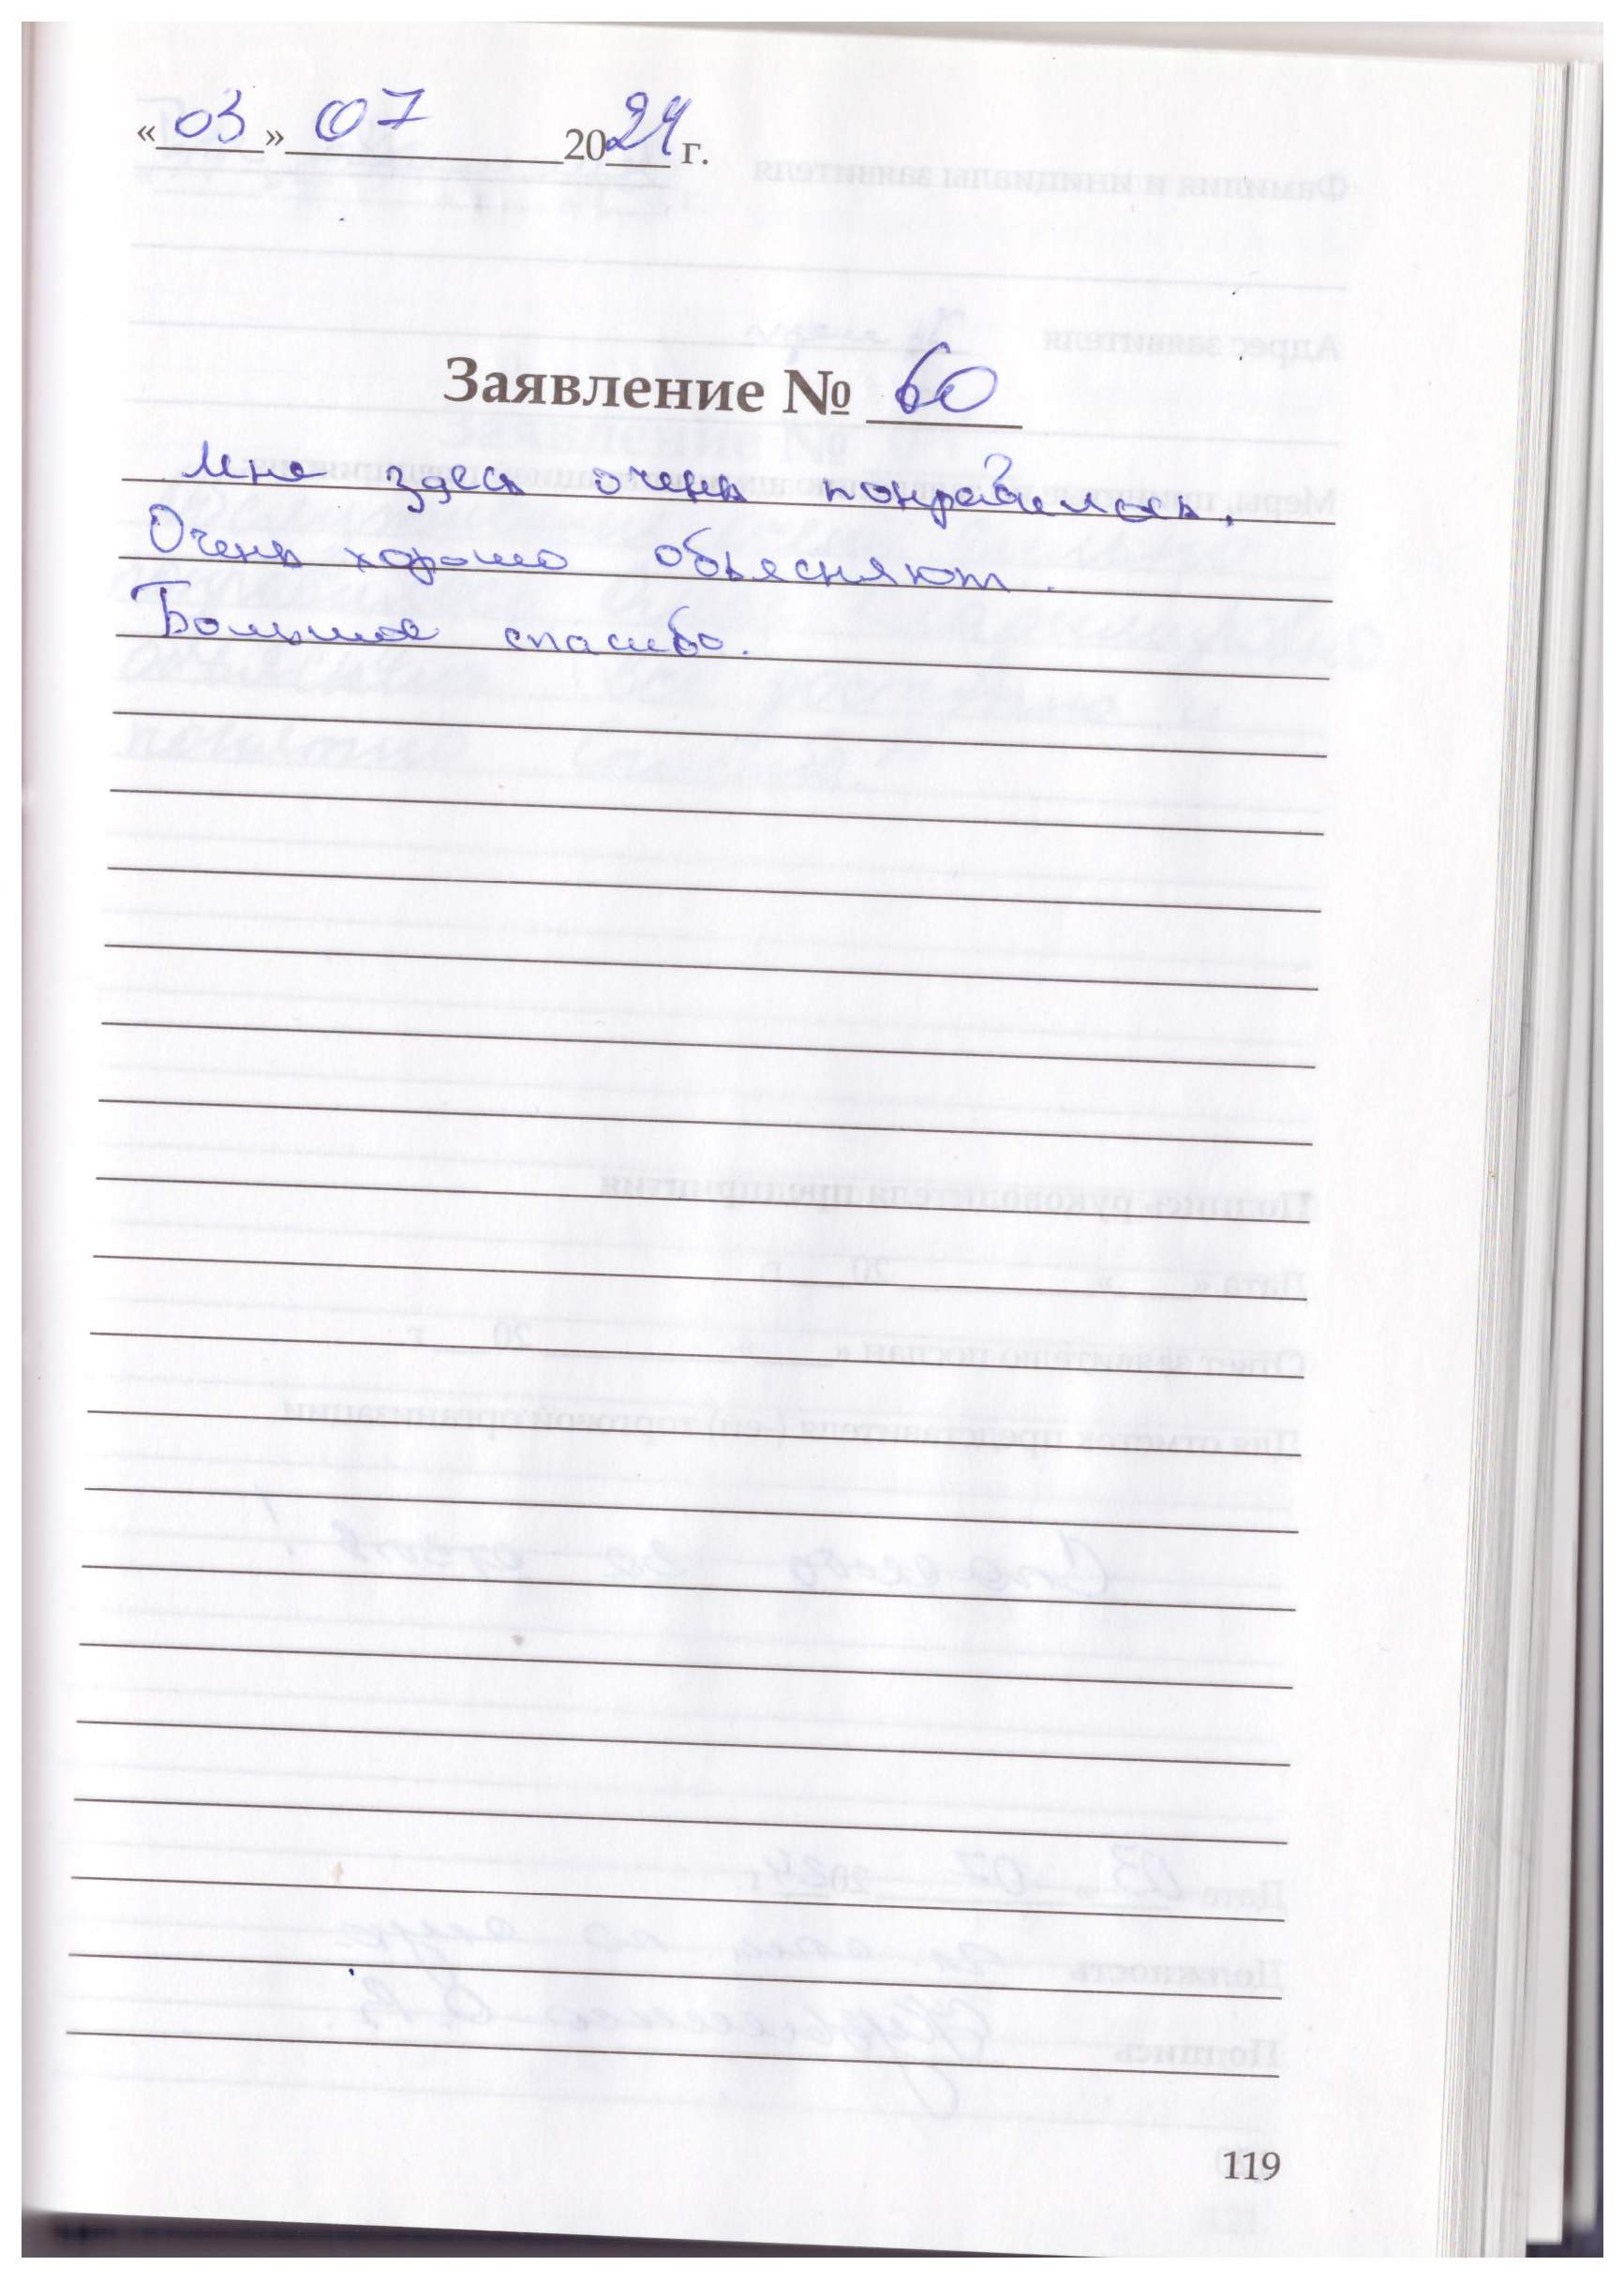 «03» 07 2024 г.
Заявление № 60
Мне здесь очень понравилось.
Очень хорошо обьясняют.
Большое спасибо.
119